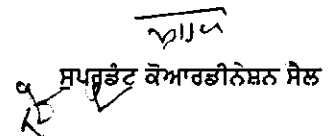 ਸੁਪਰੂਡੰਟ ਕੋਆਰਡੀਨੇਸ਼ਨ ਸੈਲ